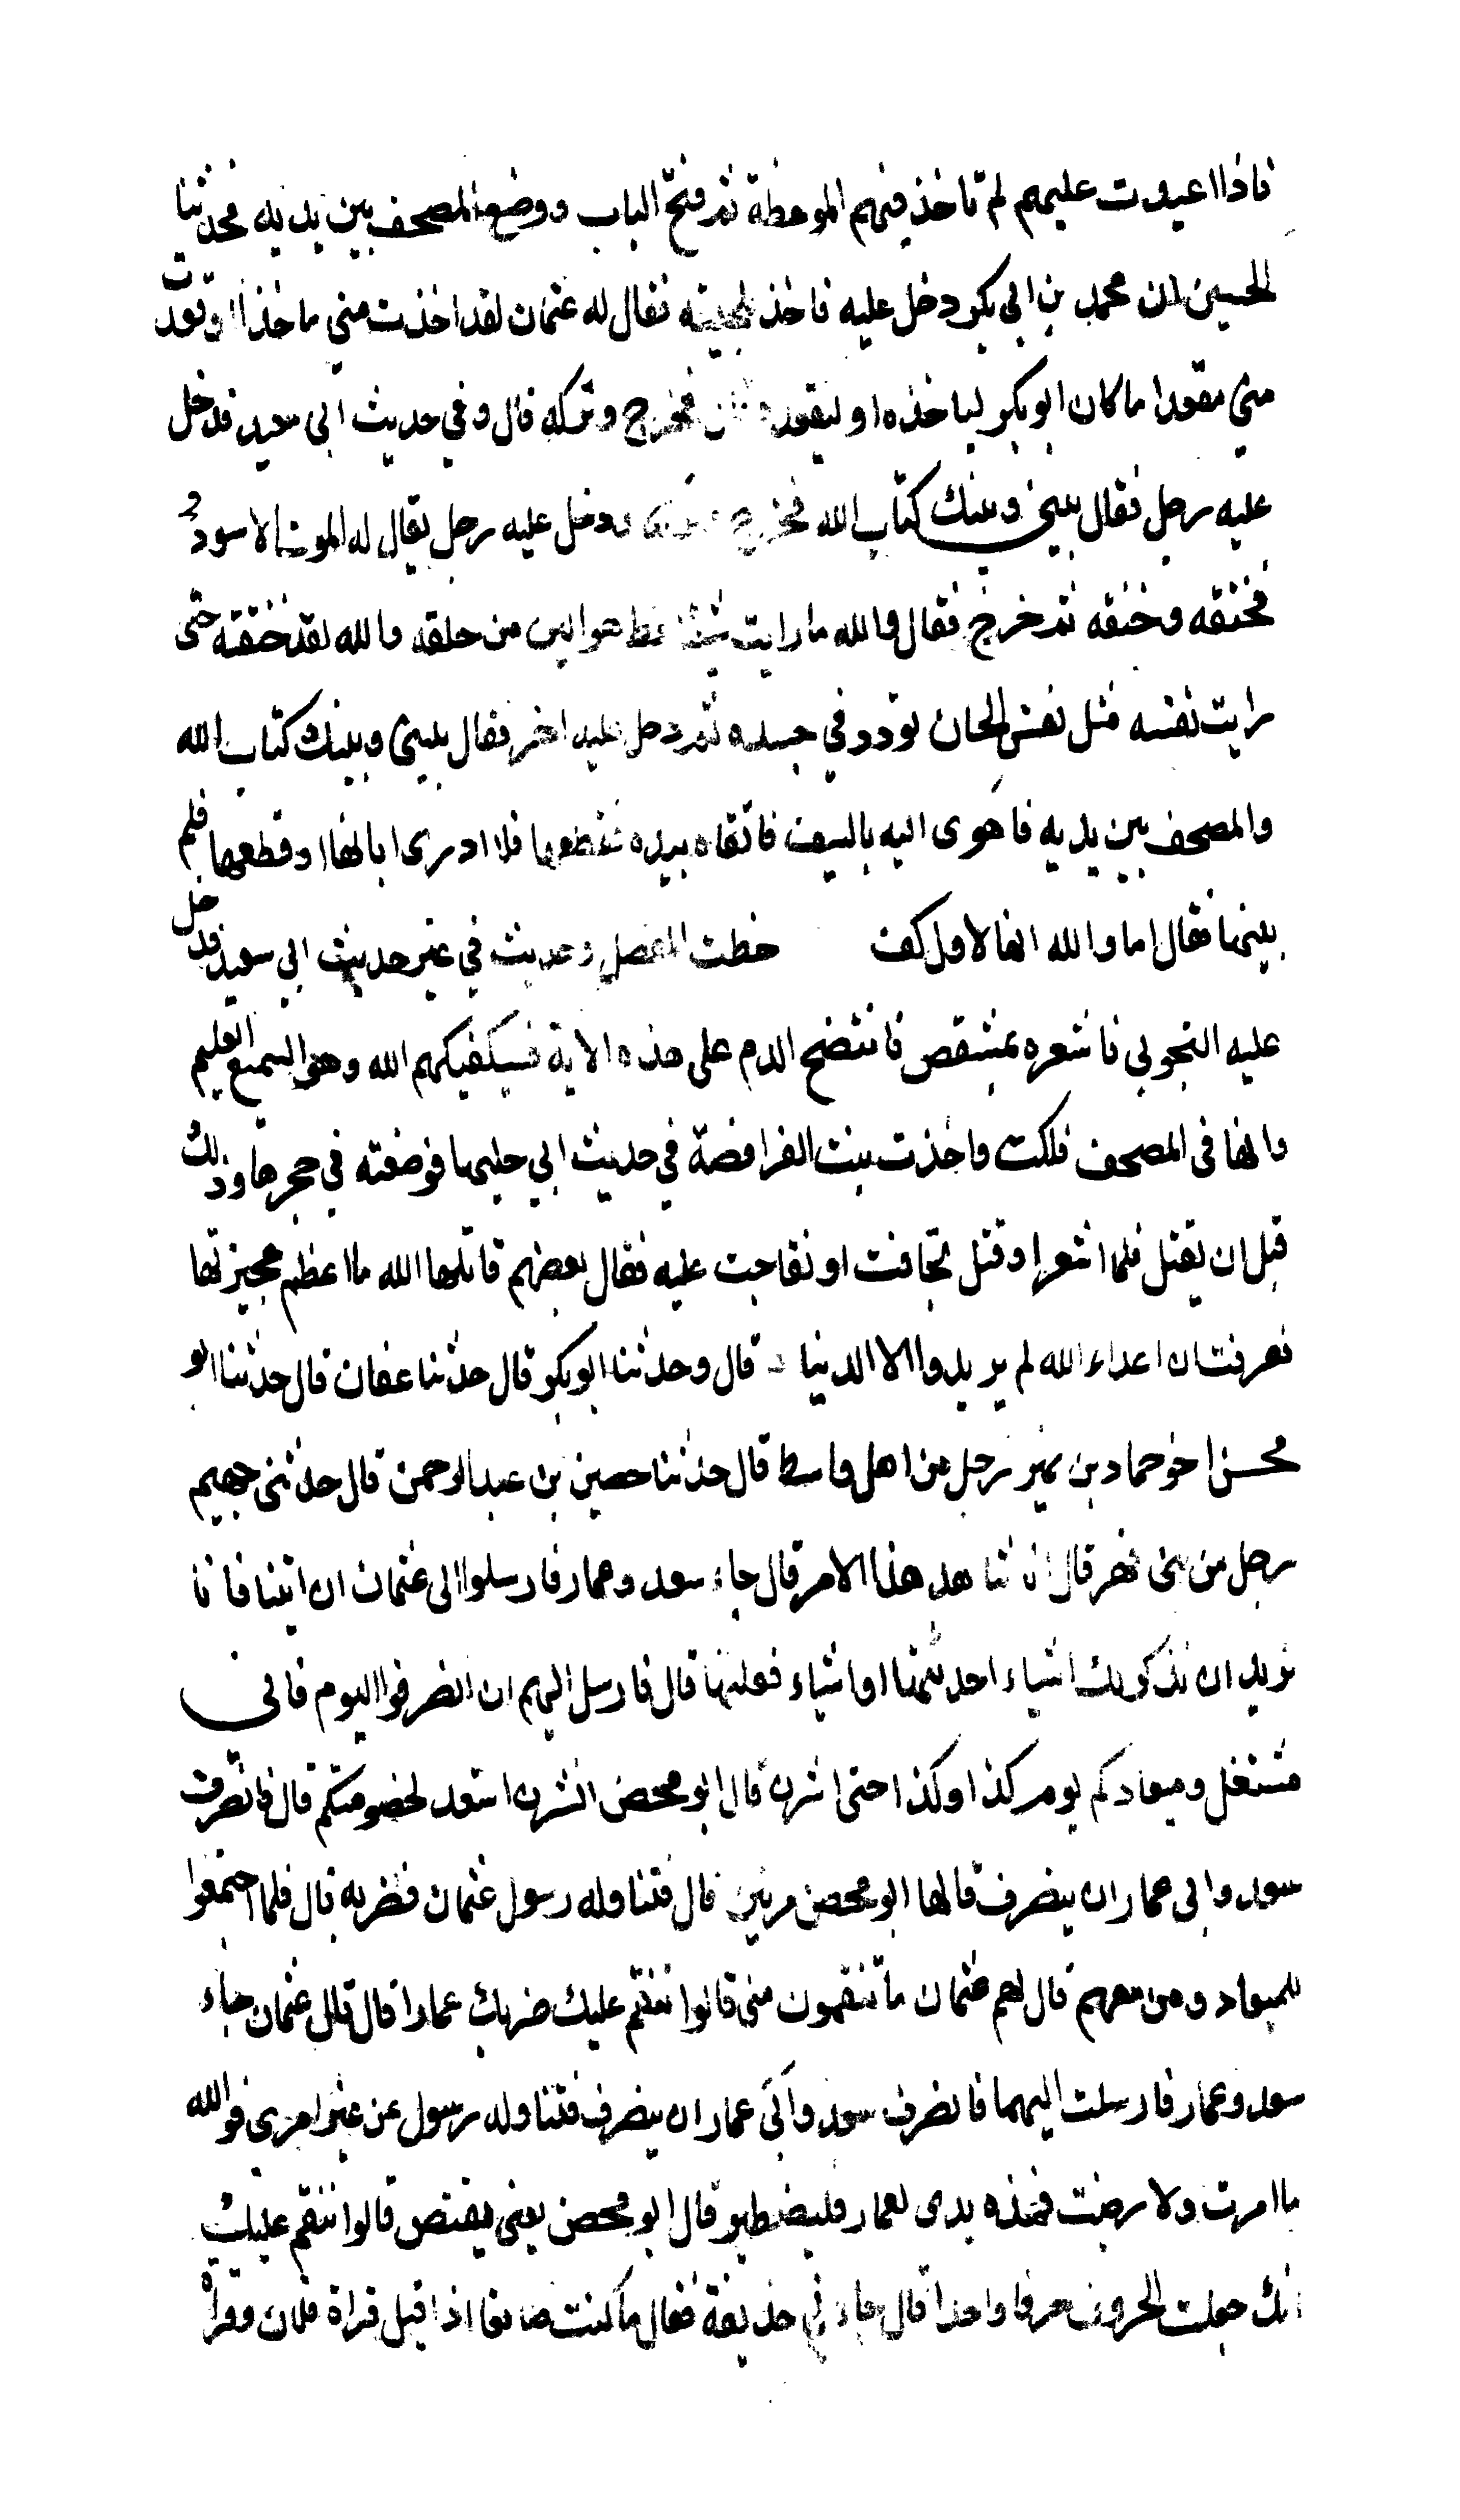 فاذا اعيدت عليهم لم تاخذ فيهم الموعظة ثم فتح الباب ووضع المصحف بين يديه فحدثنا
الحسن ان محمد بن ابى بكر دخل عليه فاخذ بلحيته فقال له عثمان لقد اخذت مني ماخذا او قعدت
مني مقعدا ما كان ابو بكر لياخذه او ليقعده فخرج وتركه قال وفي حديث ابى سعيد فدخل
عليه رجل فقال بيني وبينك كتاب الله فخرج وتركه ودخل عليه رجل يقال له الموت الاسود
فخنقه وخنقه ثم خرج فقال والله ما رايت شيئا قط هو الين من حلقه والله لقد خنقته حتى
رايت نفسه مثل نفس الجان تردد في جسده ثم دخل عليه اخر فقال بيني وبينك كتاب الله
والمصحف بين يديه فاهوى اليه بالسيف فاتقاه بيده فقطعها فلا ادرى ابانها او قطعها فلم
يبنها فقال اما والله انها لاول كف خطت المفصل وحديث في غير حديث ابي سعيد فدخل
عليه التجوبي فاشعره بمشقص فانتضح الدم على هذه الاية فسيكفيكهم الله وهو السميع العليم
وانها في المصحف ما حكت واخذت بنت الفرافصة في حديث ابي حليها فوضعته في حجرها وذلك
قبل ان يقتل فلما اشعر او قتل تجافت او تفاجت عليه فقال بعضهم قاتلها الله ما اعظم عجيزتها
فعرفت ان اعداء الله لم يريدوا الا الدنيا قال وحدثنا ابو بكر قال حدثنا عفان قال حدثنا ابو
محسن اخو حماد بن نمير رجل من اهل واسط قال حدثنا حصين بن عبد الرحمن قال حدثني جهيم
رجل من بنى فهر قال انا شاهد هذا الامر قال جاء سعد وعمار فارسلوا الى عثمان ان ائتنا فانا
نريد ان نذكر لك اشياء احدثتها او اشياء فعلتها قال فارسل اليهم ان انصرفوا اليوم فانى
مشتغل وميعادكم يوم كذا وكذا حتى اشزن قال ابو محصن اتشزن استعد لخصومتكم قال فانصرف
سعد وابى عمار ان ينصرف قالها ابو محصن مرتين قال فتناوله رسول عثمان فضربه قال فلما اجتمعوا
للميعاد ومن معهم قال لهم عثمان ما تنقمون منى قالوا ننقم عليك ضربك عمارا قال قال عثمان جاء
سعد وعمار فارسلت اليهما فانصرف سعد وابى عمار ان ينصرف فتناوله رسول عن غير امرى فوالله
ما امرت ولا رضيت فهذه يدى لعمار فليصطبر قال ابو محصن يعنى يقتص قالوا ننقم عليك
انك جعلت الحروف حرفا واحدا قال جاءني حذيفة فقال ما كنت صانعا اذا قيل قراة فلان وقراة